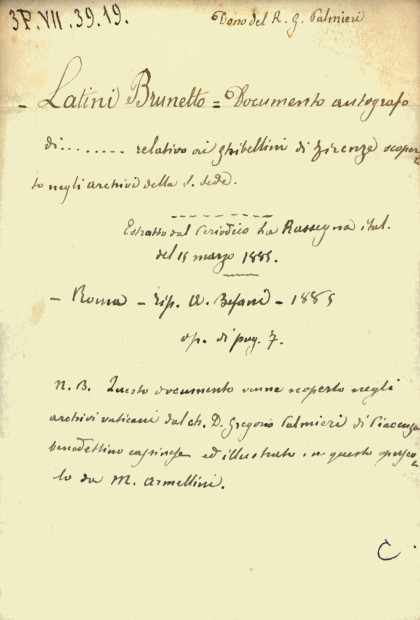 3P.VII.39.19.
Dono del R. G. Palmieri
- Latini Brunetto = Documento autografo
di........ relativo ai ghibellini di Firenze scoper=
to negli archivi della S. Sede.
Estratto dal Periodico La Rassegna ital.
del 15 marzo 1885.
- Roma - Tip. A. Befani - 1885
op. di pag. 7.
N. B. Questo documento venne scoperto negli
archivi vaticani dal ch. D. Gregorio Palmieri di Piacenza
benedettino cassinese ed illustrato in questo opusco=
lo da M. Armellini.
C.